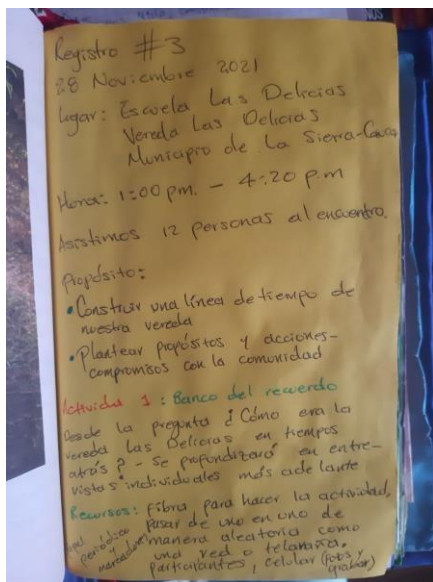 Registro #3
28 Noviembre 2021
Lugar: Escuela Las Delicias
Vereda Las Delicias
Municipio de La Sierra-Cauca
Hora: 1:00 pm. - 4:20 p.m
Asistimos 12 personas al encuentro.
Propósito:
• Construir una línea de tiempo de
nuestra vereda
• Plantear propósitos y acciones-
compromisos con la comunidad
Actividad 1: Banco del recuerdo
Desde la pregunta ¿Cómo era la
vereda Las Delicias en tiempos
atrás? - Se profundizará en entre-
vistas individuales más adelante
Recursos: Fibra, para hacer la actividad,
pasar de uno en uno de
manera aleatoria como
una red o telaraña.
participantes, celular (fotos y
grabar)
papel
periódico
y
marcadores